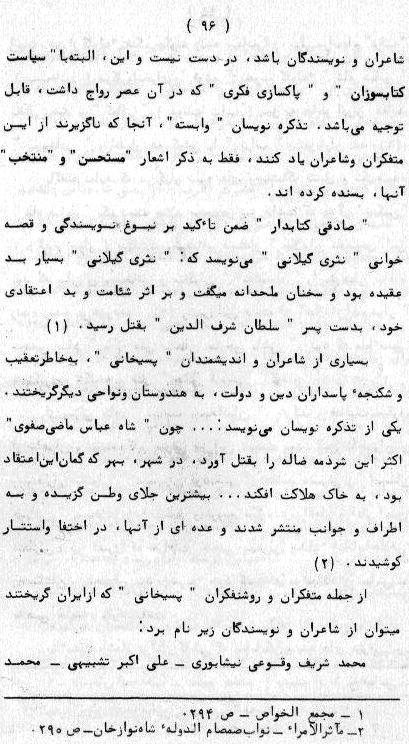 ( ۹۶ )
شاعران و نویسندگان باشد، در دست نیست و این، البته با " سیاست
کتابسوزان " و " پاکسازی فکری " که در آن عصر رواج داشت، قابل
توجیه می‌باشد. تذکره نویسان " وابسته"، آنجا که ناگزیرند از ایـن
متفکران وشاعران یاد کنند، فقط به ذکر اشعار "مستحسن" و "منتخب"
آنها، بسنده کرده اند.
" صادقی کتابدار " ضمن تاٴکید بر نبـوغ نـویسندگی و قصـه
خوانی " نثری گیلانی " می‌نویسد که: " نثری گیلانی " بسیار بــد
عقیده بود و سخنان ملحدانه میگفت و بر اثر شئامت و بد اعتقادی
خود، بدست پسر " سلطان شرف الدین " بقتل رسید. (۱)
بسیاری از شاعران و اندیشمندان " پسیخانی "، به‌خاطرتعقیب
و شکنجهٴ پاسداران دین و دولت، به هندوستان ونواحی دیگرگریختند.
یکی از تذکره نویسان می‌نویسد:... چون " شاه عباس ماضی‌صفوی"
اکثر این شرذمه ضاله را بقتل آورد، در شهر، بهر که گمان‌این‌اعتقاد
بود، به خاک هلاکت افکند... بیشترین جلای وطـن گزیـده و بـه
اطراف و جوانب منتشر شدند و عده ای از آنهـا، در اختفا واستتـار
کوشیدند. (۲)
از جمله متفکران و روشنفکران " پسیخانی " که‌ازایران گریختند
میتوان از شاعران و نویسندگان زیر نام برد:
محمد شریف وقـوعی نیشابوری ــ علی اکبر تشبیهی ــ محمـد
۱ ــ مجمع الخواص ــ ص ۲۹۴.
۲ــ مآثرالامراءٴ ــ نواب‌صمصام الدولهٴ شاه‌نوازخان‌ــ ص ۲۹۵.